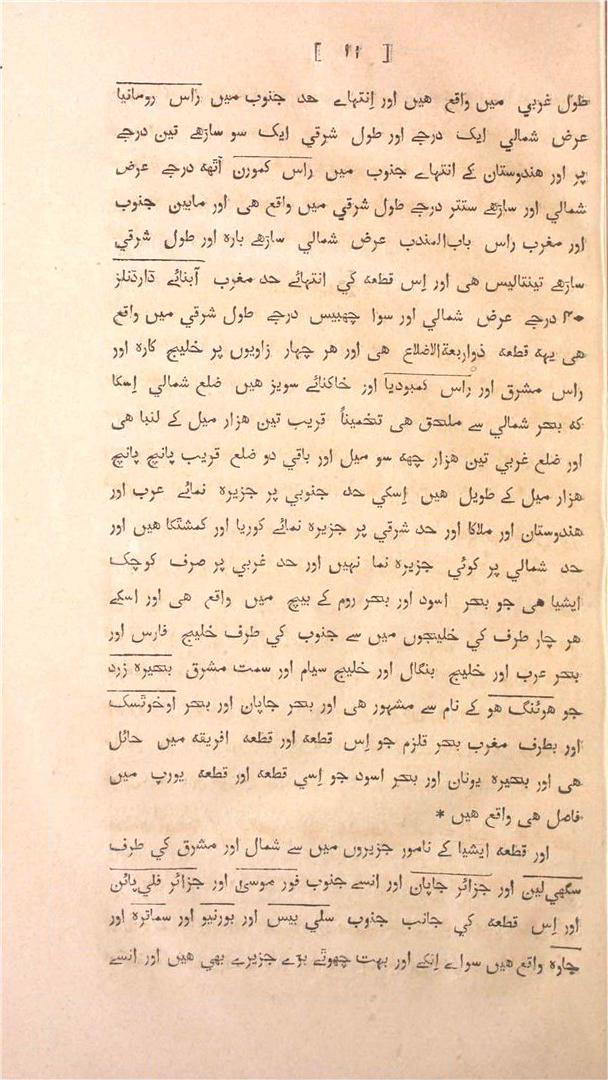 [ ١١ ]
طول غربي میں واقع هیں اور اِنتہاے حد جنوب میں راس رومانیا
عرض شمالي ایک درجے اور طول شرقي ایک سو ساڑهے تین درجے
پر اور هندوستان کے انتہاے جنوب میں راس کمورن آٹهه درجے عرض
شمالي اور ساڑهے ستتر درجے طول شرقي میں واقع هی اور مابین جنوب
اور مغرب راس باب‌المندب عرض شمالي ساڑهے باره اور طول شرقي
ساڑهے تینتالیس هی اور اِس قطعه کي انتہائے حد مغرب آبنائے ڈارڈنلز
۴۰ درجے عرض شمالي اور سوا چهبیس درجے طول شرقي میں واقع
هی یهه قطعه ذواربعةالاضلاع هی اور هر چہار زاویوں پر خلیج کاره اور
راس مشرق اور راس کمبودیا اور خاکنائے سویز هیں ضلع شمالي اِسکا
که بحر شمالي سے ملحق هی تخمیناً قریب تین هزار میل کے لنبا هی
اور ضلع غربي تین هزار چهه سو میل اور باقي دو ضلع قریب پانچ پانچ
هزار میل کے طویل هیں اِسکي حد جنوبي پر جزیره نمائے عرب اور
هندوستان اور ملاکا اور حد شرقي پر جزیره نمائے کوریا اور کمشتکا هیں اور
حد شمالي پر کوئي جزیره نما نہیں اور حد غربي پر صرف کوچک
ایشیا هی جو بحر اسود اور بحر روم کے بیچ میں واقع هی اور اسکے
هر چار طرف کي خلیجوں میں سے جنوب کي طرف خلیج فارس اور
بحر عرب اور خلیج بنگال اور خلیج سیام اور سمت مشرق بحیره زرد
جو هرٹنگ هو کے نام سے مشہور هی اور بحر جاپان اور بحر اوخوٹسک
اور بطرف مغرب بحر قلزم جو اِس قطعه اور قطعه افریقه میں حائل
هی اور بحیره یونان اور بحر اسود جو اِسي قطعه اور قطعه یورپ میں
فاصل هی واقع هیں *
اور قطعه ایشیا کے نامور جزیروں میں سے شمال اور مشرق کي طرف
سگهي‌لین اور جزائر جاپان اور انسے جنوب فور موسیٰ اور جزائر فلي‌پائن
اور اِس قطعه کي جانب جنوب سلي بیس اور بورنیو اور سماتره اور
جاوه واقع هیں سواے اِنکے اور بہت چهوٹے بڑے جزیرے بهي هیں اور انسے